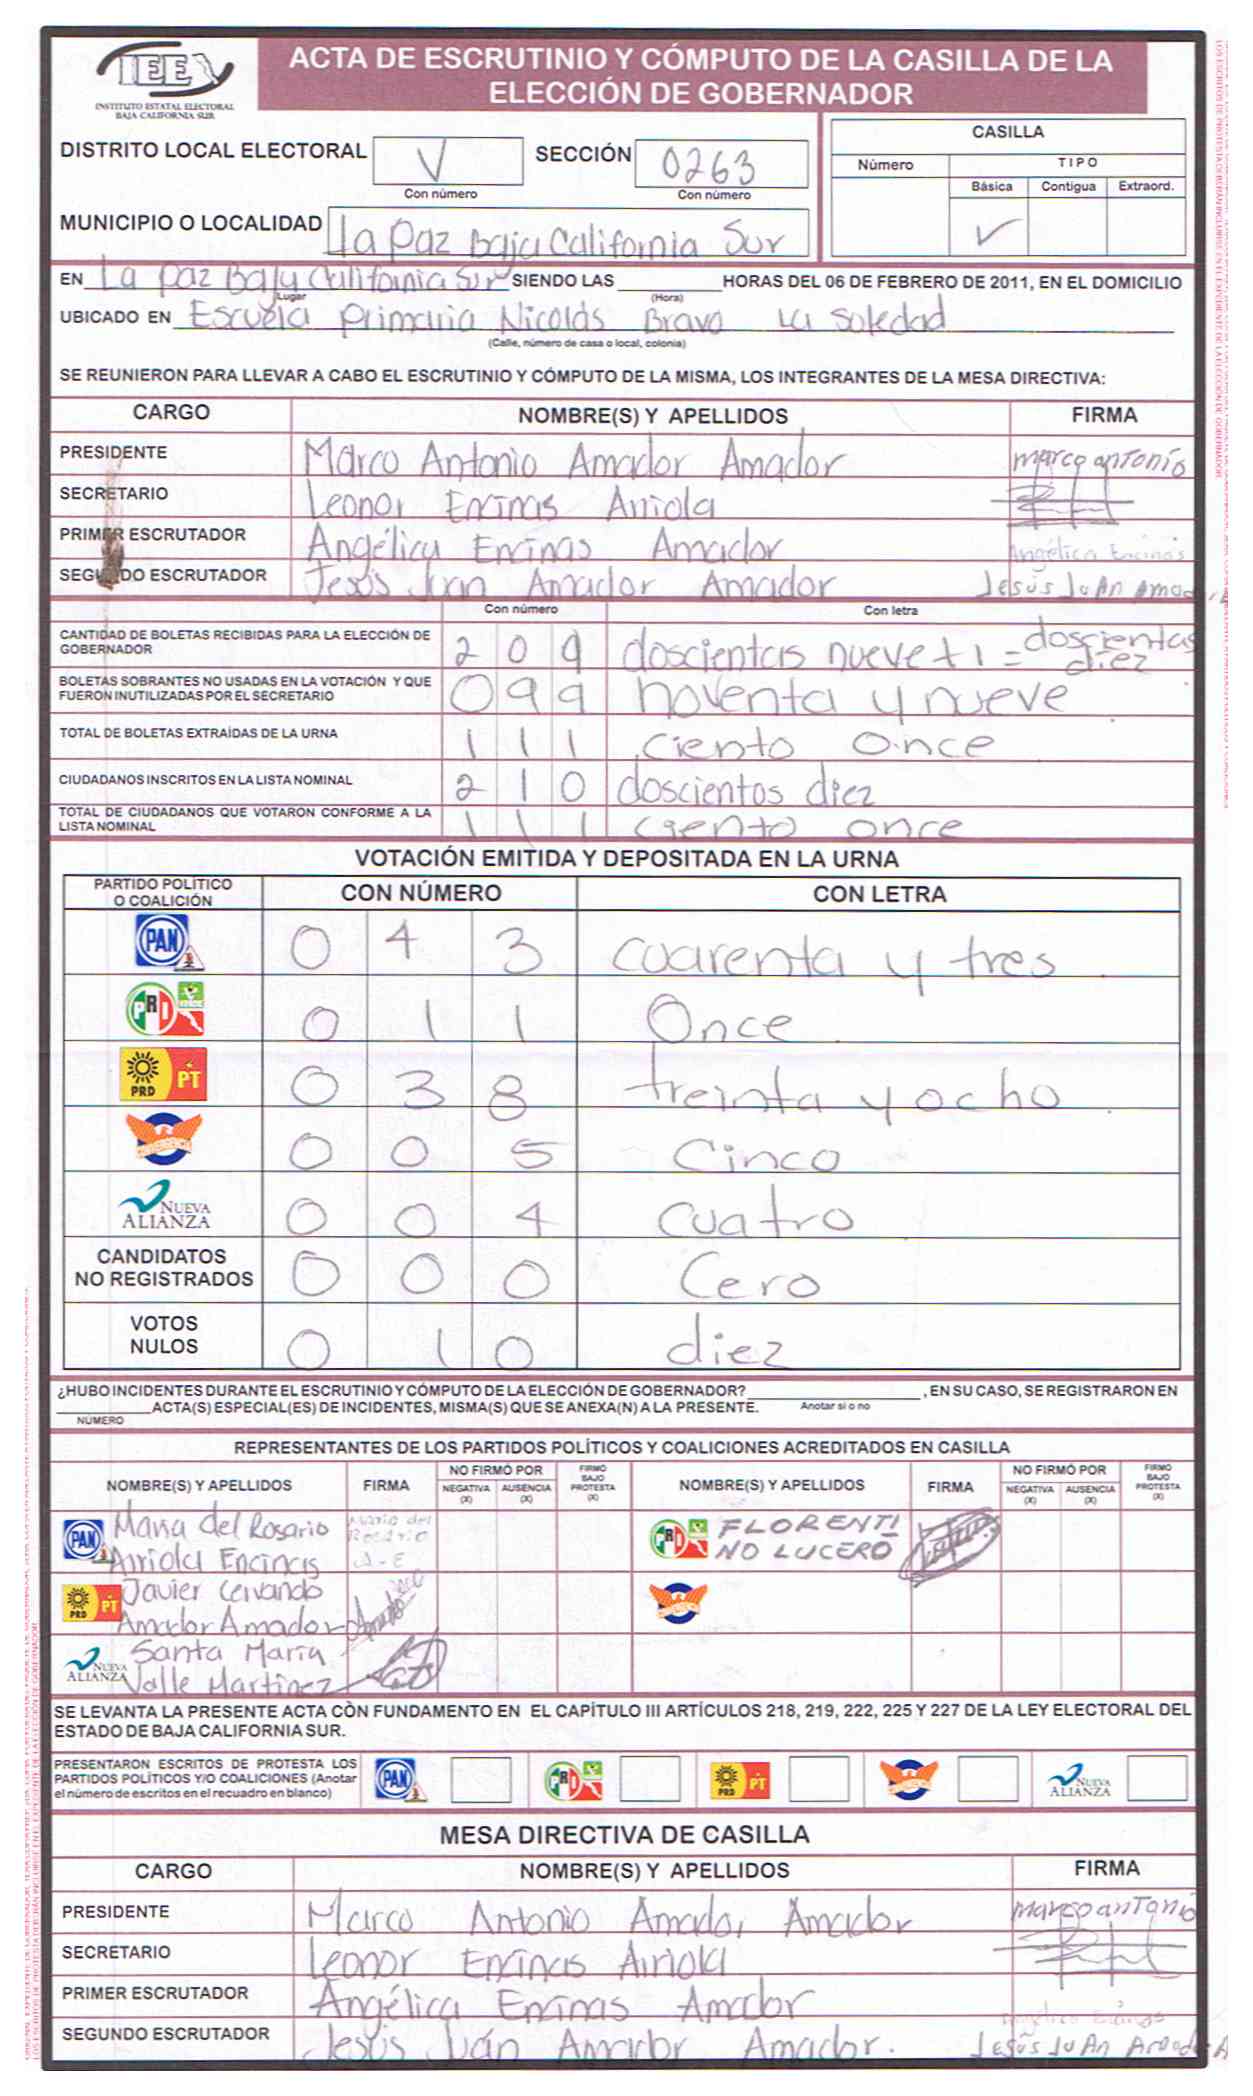 IEE
INSTITUTO ESTATAL ELECTORAL
BAJA CALIFORNIA SUR
ACTA DE ESCRUTINIO Y CÓMPUTO DE LA CASILLA DE LA
ELECCIÓN DE GOBERNADOR
DISTRITO LOCAL ELECTORAL V SECCIÓN 0263
Con número Con número
MUNICIPIO O LOCALIDAD La Paz Baja California Sur
CASILLA
Número TIPO
Básica Contigua Extraord.
✓
EN La Paz Baja California Sur SIENDO LAS HORAS DEL 06 DE FEBRERO DE 2011, EN EL DOMICILIO
Lugar (Hora)
UBICADO EN Escuela Primaria Nicolás Bravo La Soledad
(Calle, número de casa o local, colonia)
SE REUNIERON PARA LLEVAR A CABO EL ESCRUTINIO Y CÓMPUTO DE LA MISMA, LOS INTEGRANTES DE LA MESA DIRECTIVA:
CARGO NOMBRE(S) Y APELLIDOS FIRMA
PRESIDENTE Marco Antonio Amador Amador marco antonio
SECRETARIO Leonor Encinas Arriola
PRIMER ESCRUTADOR Angélica Encinas Amador Angélica Encinas
SEGUNDO ESCRUTADOR Jesús Juan Amador Amador Jesús Juan Amador A
Con número Con letra
CANTIDAD DE BOLETAS RECIBIDAS PARA LA ELECCIÓN DE
GOBERNADOR 209 doscientas nueve + 1 = doscientas diez
BOLETAS SOBRANTES NO USADAS EN LA VOTACIÓN Y QUE
FUERON INUTILIZADAS POR EL SECRETARIO 099 noventa y nueve
TOTAL DE BOLETAS EXTRAÍDAS DE LA URNA 111 ciento once
CIUDADANOS INSCRITOS EN LA LISTA NOMINAL 210 doscientos diez
TOTAL DE CIUDADANOS QUE VOTARON CONFORME A LA
LISTA NOMINAL 111 ciento once
VOTACIÓN EMITIDA Y DEPOSITADA EN LA URNA
PARTIDO POLÍTICO
O COALICIÓN CON NÚMERO CON LETRA
PAN 0 4 3 cuarenta y tres
PRI VERDE 0 1 1 Once
PRD PT 0 3 8 treinta y ocho
CONVERGENCIA 0 0 5 Cinco
NUEVA
ALIANZA 0 0 4 cuatro
CANDIDATOS
NO REGISTRADOS 0 0 0 Cero
VOTOS
NULOS 0 1 0 diez
¿HUBO INCIDENTES DURANTE EL ESCRUTINIO Y CÓMPUTO DE LA ELECCIÓN DE GOBERNADOR? , EN SU CASO, SE REGISTRARON EN
ACTA(S) ESPECIAL(ES) DE INCIDENTES, MISMA(S) QUE SE ANEXA(N) A LA PRESENTE. Anotar si o no
NÚMERO
REPRESENTANTES DE LOS PARTIDOS POLÍTICOS Y COALICIONES ACREDITADOS EN CASILLA
NOMBRE(S) Y APELLIDOS FIRMA NO FIRMÓ POR NEGATIVA (X) AUSENCIA (X) FIRMÓ BAJO PROTESTA (X) NOMBRE(S) Y APELLIDOS FIRMA NO FIRMÓ POR NEGATIVA (X) AUSENCIA (X) FIRMÓ BAJO PROTESTA (X)
PAN Maria del Rosario Arriola Encinas Maria del Rosario A-E
PRI FLORENTINO LUCERO
PRD PT Javier Cervando Amador Amador
NUEVA ALIANZA Santa María Valle Martinez
SE LEVANTA LA PRESENTE ACTA CÒN FUNDAMENTO EN EL CAPÍTULO III ARTÍCULOS 218, 219, 222, 225 Y 227 DE LA LEY ELECTORAL DEL
ESTADO DE BAJA CALIFORNIA SUR.
PRESENTARON ESCRITOS DE PROTESTA LOS
PARTIDOS POLÍTICOS Y/O COALICIONES (Anotar
el número de escritos en el recuadro en blanco)
PAN PRI PRD PT NUEVA ALIANZA
MESA DIRECTIVA DE CASILLA
CARGO NOMBRE(S) Y APELLIDOS FIRMA
PRESIDENTE Marco Antonio Amador Amador marco antonio
SECRETARIO Leonor Encinas Arriola
PRIMER ESCRUTADOR Angélica Encinas Amador Angélica Encinas
SEGUNDO ESCRUTADOR Jesús Juán Amador Amador. Jesús Juan Amador A